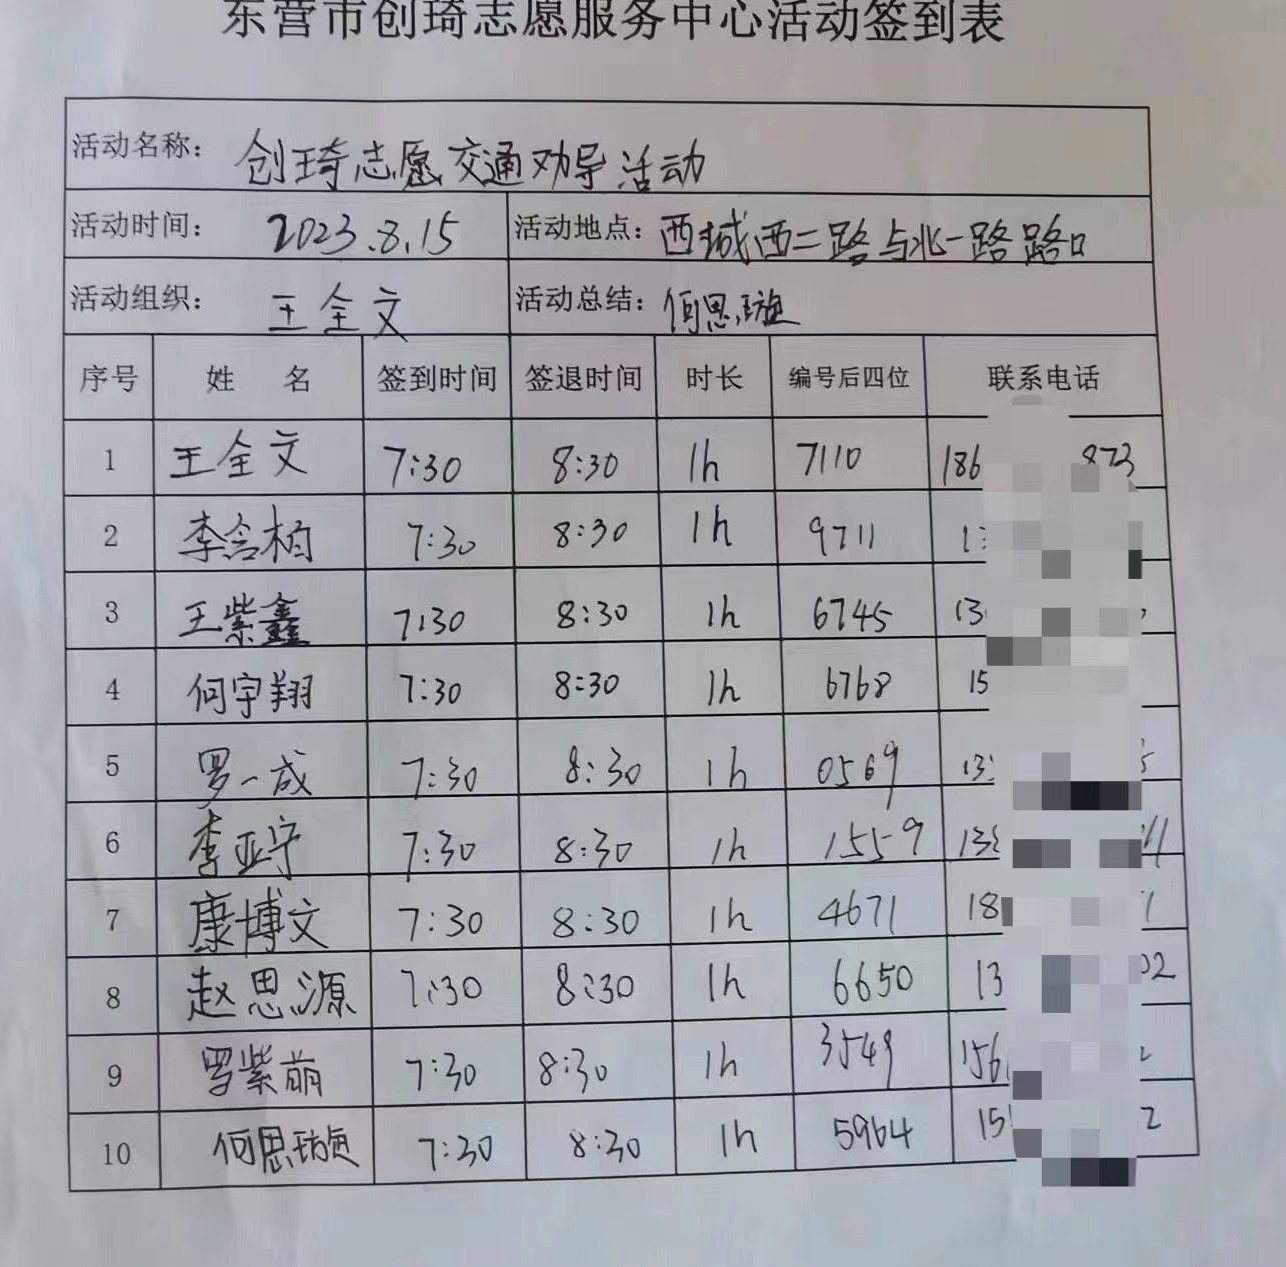 东营市创琦志愿服务中心活动签到表
活动名称: 创琦志愿交通劝导活动
活动时间: 2023.8.15 活动地点: 西城西二路与北一路路口
活动组织: 王全文 活动总结: 何思璇
序号 姓 名 签到时间 签退时间 时长 编号后四位 联系电话
1 王全文 7:30 8:30 1h 7110 186 873
2 李含柏 7:30 8:30 1h 9711
3 王紫鑫 7:30 8:30 1h 6745 13
4 何宇翔 7:30 8:30 1h 6768 15
5 罗一成 7:30 8:30 1h 0569 13
6 李亚宁 7:30 8:30 1h 1559 13
7 康博文 7:30 8:30 1h 4671 18
8 赵思源 7:30 8:30 1h 6650 13 02
9 罗紫萌 7:30 8:30 1h 3549 156
10 何思璇 7:30 8:30 1h 5964 15 2